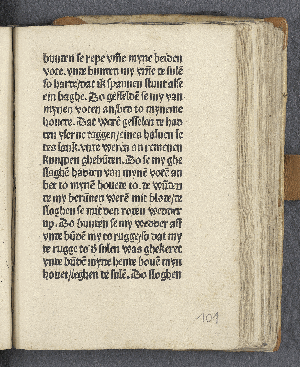 bunten se repe vm̄e myne beiden
vote. vnte bunten my vm̄e te sulē
so harte/dat ik spannen stunt alse
ein baghe. Do gesselden se my van
mynen voten an/bet to myneme
houete. Dat werē gesselen te had
ten yserne taggen/eines haluen le
tes lank. vnte weren an remenen
knuppen ghebūten. Do se my ghe
slaghē hadten van mynē votē an
bet to mynē houete to. te wūten
te my berūnen werē mit blote/te
sloghen se mit den roten wedder
vp. Do bunten se my wedder aff
vnte būdē my to rugge/so dat my
te rugge to d' sulen was ghekeret
vnte būdē myne hente bouē myn
houet/ieghen te sulē. Do sloghen
101